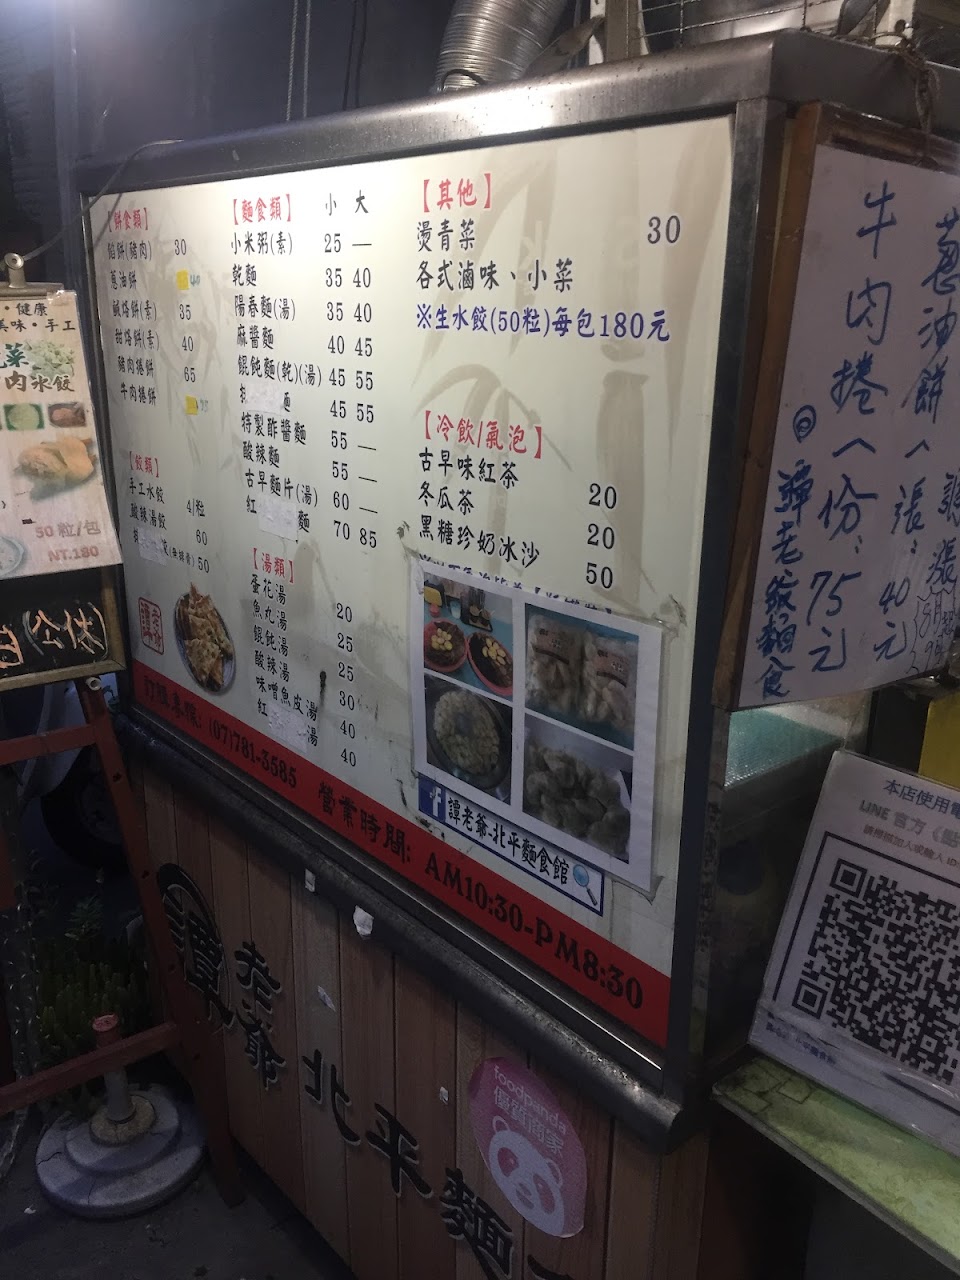 【餅食類】
餡餅(豬肉) 30
蔥油餅 40
鹹烙餅(素) 35
甜烙餅(素) 40
豬肉捲餅 65
牛肉捲餅 75
【餃類】
手工水餃 4/粒
酸辣湯餃 60
50
【麵食類】 小 大
小米粥(素) 25 —
乾麵 35 40
陽春麵(湯) 35 40
麻醬麵 40 45
餛飩麵(乾)(湯) 45 55
麵 45 55
特製酢醬麵 55 —
酸辣麵 55 —
古早麵片(湯) 60 —
紅 麵 70 85
【湯類】
蛋花湯 20
魚丸湯 25
餛飩湯 25
酸辣湯 30
味噌魚皮湯 40
紅 湯 40
【其他】
燙青菜 30
各式滷味、小菜
※生水餃(50粒)每包180元
【冷飲/氣泡】
古早味紅茶 20
冬瓜茶 20
黑糖珍奶冰沙 50
f 譚老爺-北平麵食館
訂購專線: (07)781-3585 營業時間: AM10:30-PM8:30
譚老爺
北平麵
foodpanda
優質商家
・健康
美味・手工
菜
肉水餃
50粒/包
NT.180
公休
蔥油餅一張、40元
牛肉捲一份、75元
譚老爺麵食
漲
本店使用電
LINE 官方